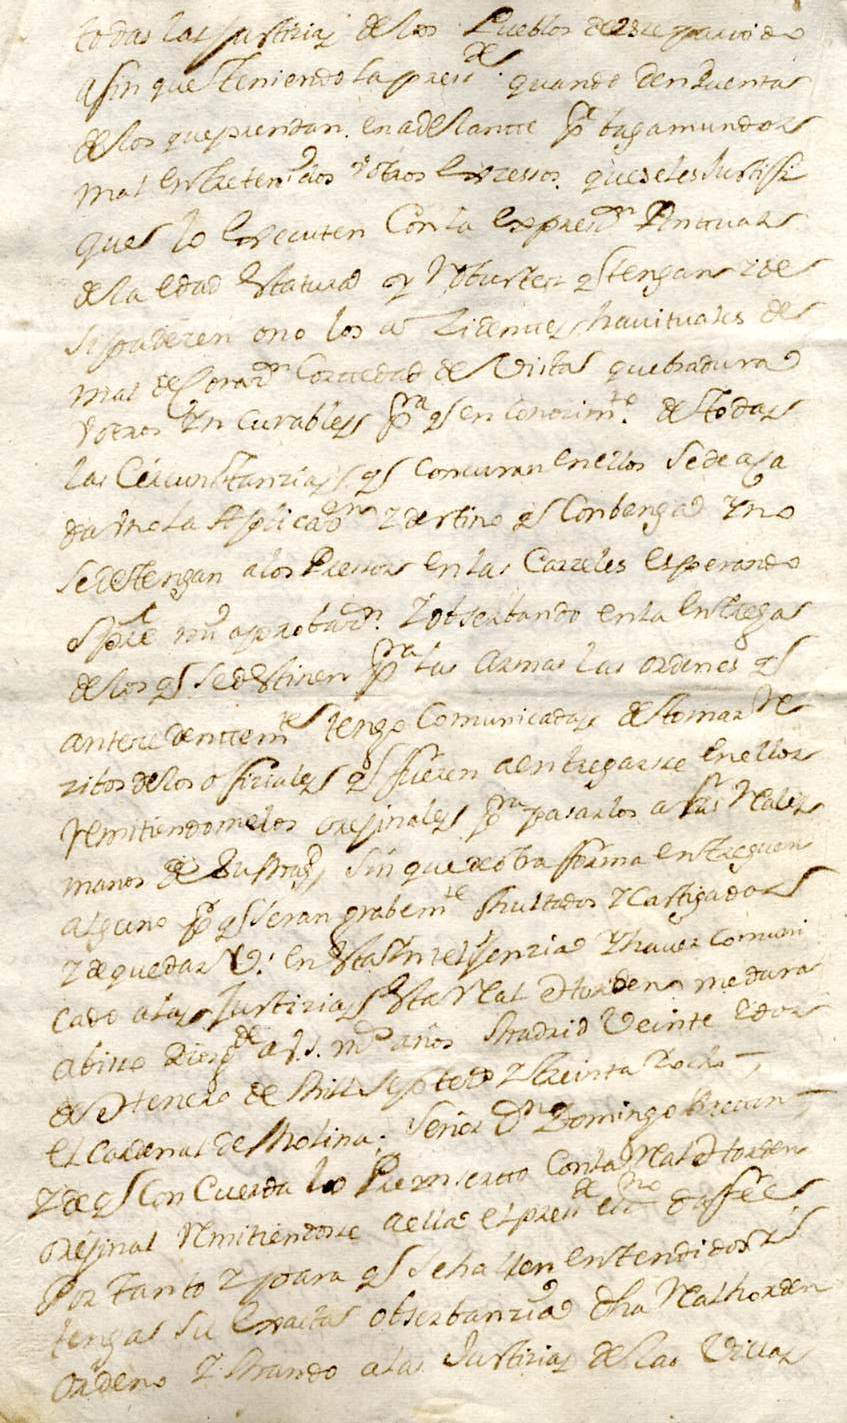 todas las Justizias de los Pueblos de ese partido
a fin que Teniendo la pres.te quando den quentas
de los que prendan en adelante p.r bagamundos
mal entretenidos y otros excessos que se les Justifi
quen lo executen Con la expres.n Puntual
de la edad estatura y Robustez q tengan y de
si padezen o no los aczidentes havituales de
mal de Corazon Cortedad de Vista quebradura
y otros Yncurables p.ra q en conozim.to de todas
las Circunstanzias q concurran en ellos se deva
darme la Aplicaz.n y destino q Conbenga Y no
se detengan a los Pressos en las Carzeles esperando
Spre mi aprobaz.n Y obserbando en la Entrega
de los q se destinen p.ra las Armas las ordenes q
antezedentem.te tengo Comunicadas de tomar Re
zibos de los ofiziales q fueren a entregarse en ellos
Remitiendomelos orejinales p.ra pasarlos a las Reales
manos de Su Mag.d sin que de otra forma entreguen
alguno p.r q seran grabem.te Multados y Castigados
y de quedar V. en esta Yntelijenzia y haver Comuni
cado a las Justizias esta Real horden me dara
abisso Dios g.de a V. m.s años Madrid Veinte y dos
de henero de Mill Septez.s y treinta y ocho
el Cardenal de Molina: Señor D.n Domingo
Y de q Concuerda lo Preinserto Con la Real horden
orejinal Remitiendose a ella el pres.te ess.no da fee
Por Tanto y para q se hallen entendidos y
tenga su exacta obserbanzia dha Real horden
Ordeno y Mando a las Justizias de las Villas